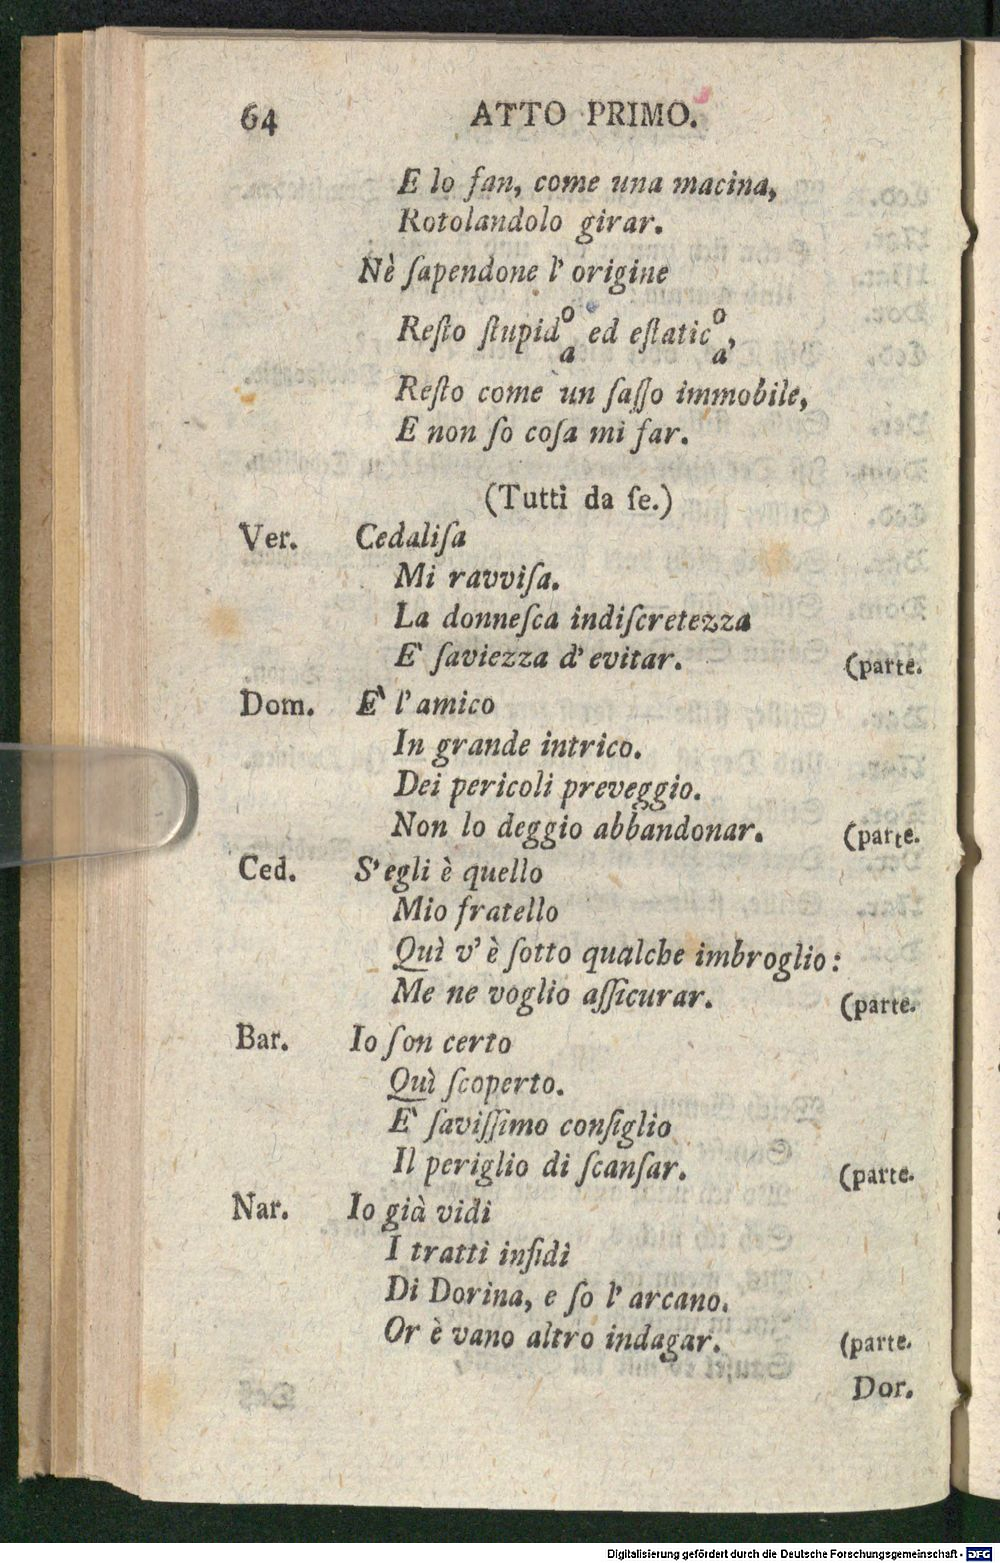 64 ATTO PRIMO.
E lo fan, come una macina,
Rotolandolo girar.
Nè ſapendone l' origine
Reſto ſtupid o/a ed eſtatic o/a,
Reſto come un ſaſſo immobile,
E non ſo coſa mi far.
(Tutti da ſe.)
Ver. Cedaliſa
Mi ravviſa.
La donneſca indiſcretezza
E' ſaviezza d' evitar. (parte.
Dom. E' l' amico
In grande intrico.
Dei pericoli preveggio.
Non lo deggio abbandonar. (parte.
Ced. S' egli è quello
Mio fratello
Quì v' è ſotto qualche imbroglio:
Me ne voglio aſſicurar. (parte.
Bar. Io ſon certo
Quì ſcoperto.
E' ſaviſſimo conſiglio
Il periglio di ſcanſar. (parte.
Nar. Io già vidi
I tratti inſidi
Di Dorina, e ſo l' arcano.
Or è vano altro indagar. (parte.
Dor.
Digitalisierung gefördert durch die Deutsche Forschungsgemeinschaft - DFG